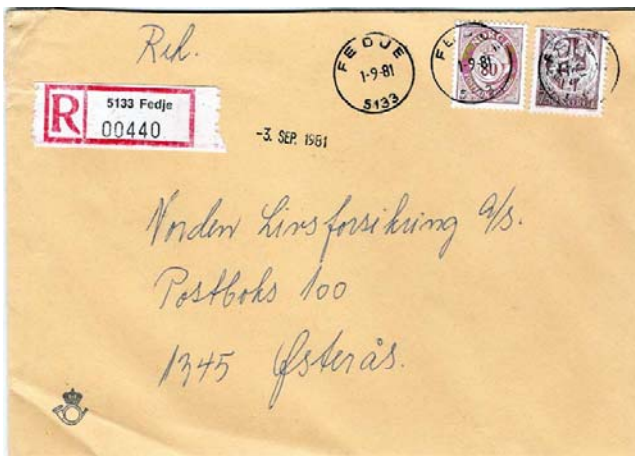 Rek.
FEDJE
1-9-81
5133
1-9-81
80
R
5133 Fedje
00440
-3. SEP. 1981
Norden Livsforsikring a/s.
Postboks 100
1345 Østerås.